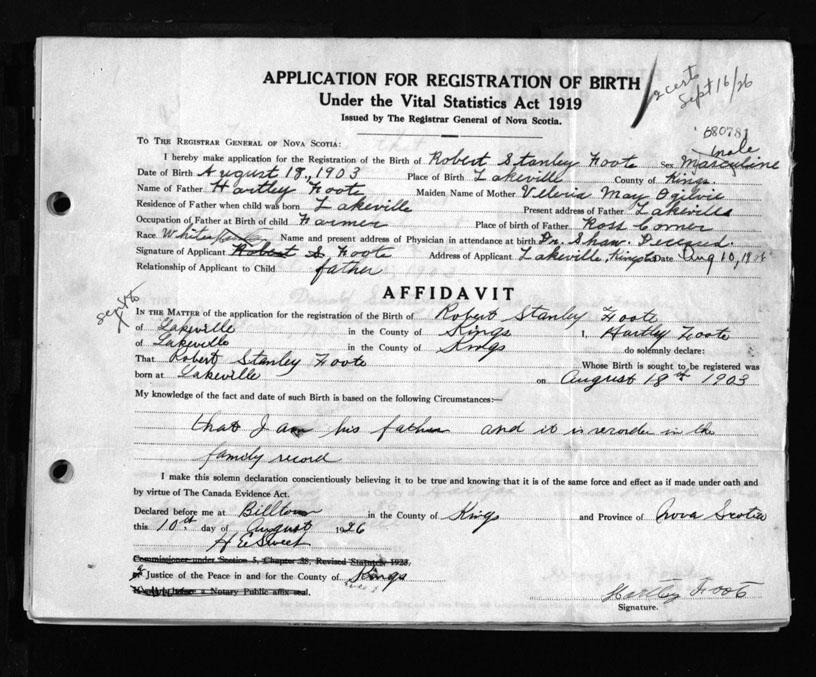 APPLICATION FOR REGISTRATION OF BIRTH
Under the Vital Statistics Act 1919
Issued by The Registrar General of Nova Scotia.
2 certs
Sept 16/26
male
TO THE REGISTRAR GENERAL OF NOVA SCOTIA:
I hereby make application for the Registration of the Birth of Robert Stanley Foote Sex Masculine
Date of Birth August 18, 1903 Place of Birth Lakeville County of Kings.
Name of Father Hartley Foote Maiden Name of Mother May Ogilvie
Residence of Father when child was born Lakeville Present address of Father Lakeville
Occupation of Father at Birth of child Farmer Place of birth of Father Ross Corner
Race White Name and present address of Physician in attendance at birth Dr. Shaw Deceased.
Signature of Applicant Robert S. Foote Address of Applicant Lakeville, Kings Co Date Aug 10,
Relationship of Applicant to Child father
AFFIDAVIT
IN THE MATTER of the application for the registration of the Birth of Robert Stanley Foote
of Lakeville in the County of Kings I, Hartley Foote
of Lakeville in the County of Kings do solemnly declare:
That Robert Stanley Foote Whose Birth is sought to be registered was
born at Lakeville on August 18th 1903
My knowledge of the fact and date of such Birth is based on the following Circumstances:—
that I am his father and it is recorder in the
family record
I make this solemn declaration conscientiously believing it to be true and knowing that it is of the same force and effect as if made under oath and
by virtue of The Canada Evidence Act.
Declared before me at Billtown in the County of Kings and Province of Nova Scotia
this 10th day of August 1926
H E Sweet
Commissioner under Section 5, Chapter 38, Revised Statutes 1923,
or Justice of the Peace in and for the County of Kings
a Notary Public affix seal.
Hartley Foote
Signature.